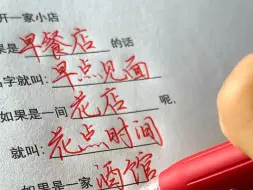 开一家小店
果是早餐店的话
名字就叫：早点见面
如果是一间花店呢，
就叫：花点时间
如果是一家酒馆